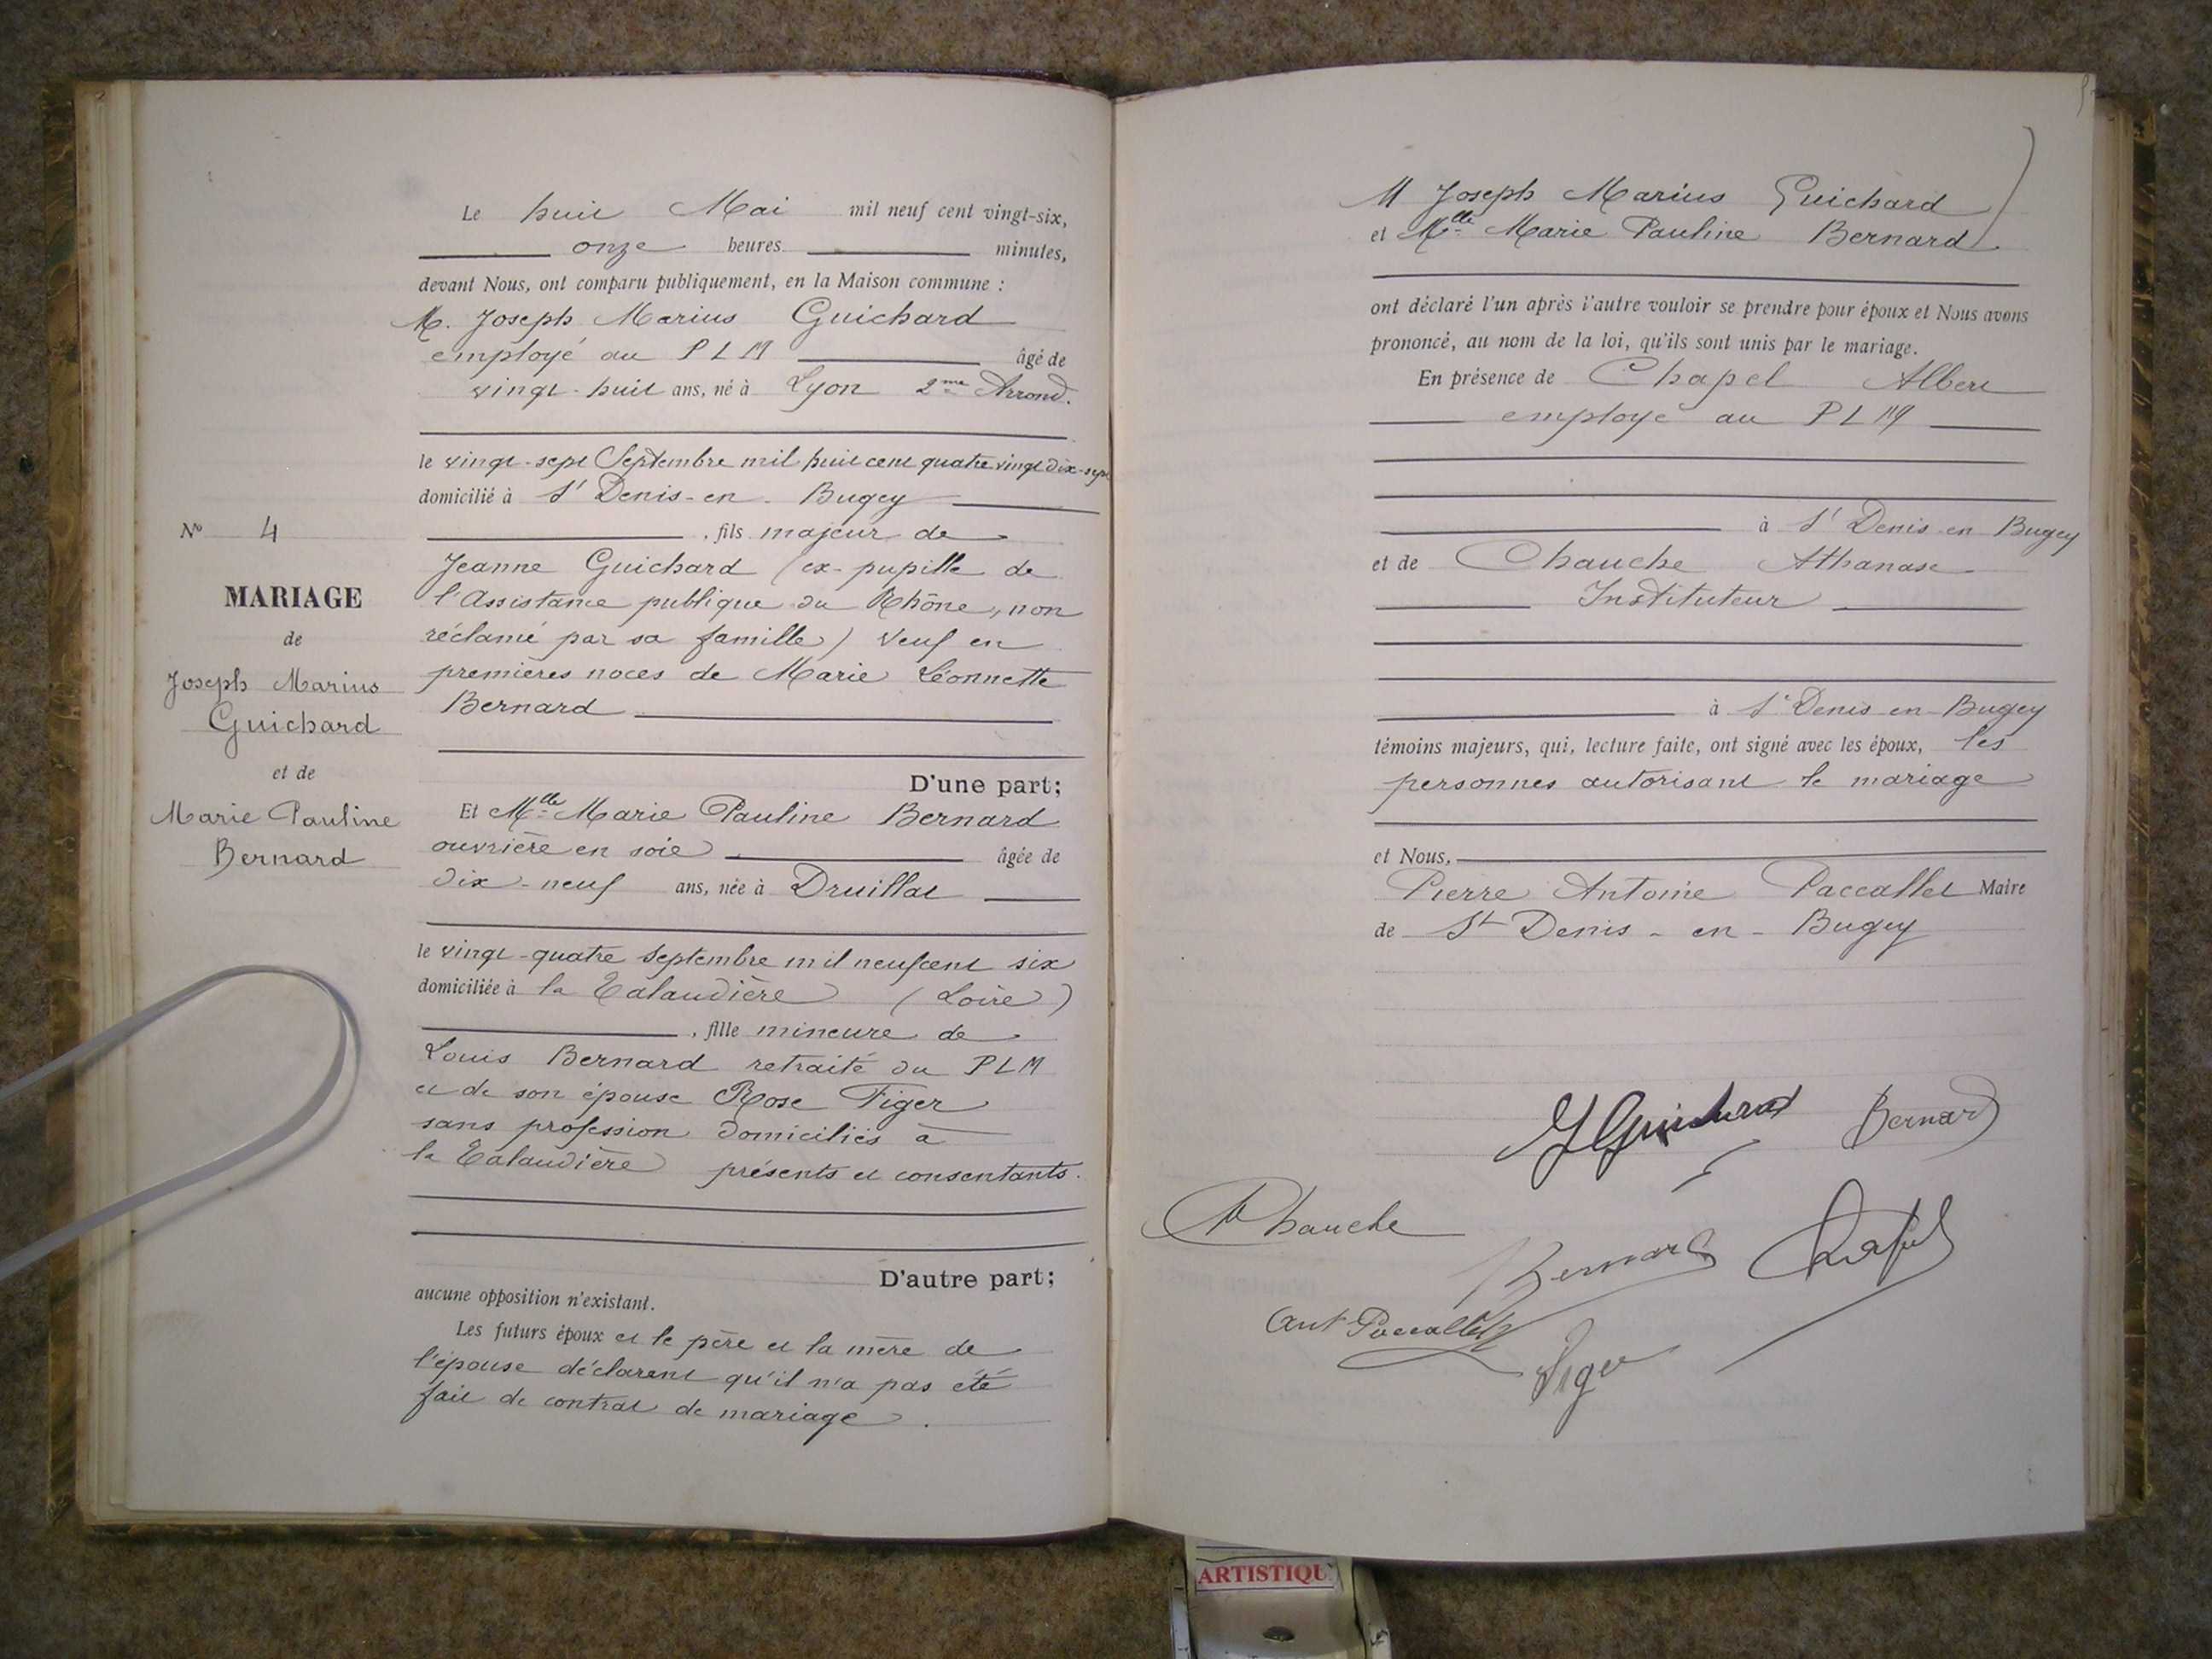 N° 4
MARIAGE
de
Joseph Marius
Guichard
et de
Marie Pauline
Bernard
Le huit Mai mil neuf cent vingt-six,
onze heures minutes,
devant Nous, ont comparu publiquement, en la Maison commune :
M. Joseph Marius Guichard
employé au PLM âgé de
vingt-huit ans, né à Lyon 2me Arrond.
le vingt-sept Septembre mil huit cent quatre vingt dix-sept
domicilié à St Denis-en-Bugey
, fils majeur de
Jeanne Guichard (ex-pupille de
l'Assistance publique du Rhône, non
réclamé par sa famille) Veuf en
premières noces de Marie Léonnette
Bernard
D'une part;
Et Mlle Marie Pauline Bernard
ouvrière en soie âgée de
dix-neuf ans, née à Druillat
le vingt-quatre septembre mil neuf cent six
domiciliée à la Talaudière (Loire)
, fille mineure de
Louis Bernard retraité du PLM
et de son épouse Rose Figer
sans profession domiciliés à
la Talaudière présents et consentants.
D'autre part;
aucune opposition n'existant.
Les futurs époux et le père et la mère de
l'épouse déclarent qu'il n'a pas été
fait de contrat de mariage.
M Joseph Marius Guichard
et Mlle Marie Pauline Bernard
ont déclaré l'un après l'autre vouloir se prendre pour époux et Nous avons
prononcé, au nom de la loi, qu'ils sont unis par le mariage.
En présence de Chapel Albert
employé au PLM
à St Denis-en Bugey
et de Chauche Athanase
Instituteur
à St Denis en-Bugey
témoins majeurs, qui, lecture faite, ont signé avec les époux, les
personnes autorisant le mariage
et Nous,
Pierre Antoine Paccallet Maire
de St Denis-en-Bugey
J Guichard Bernard
A Chauche
Bernard Chapel
Ant Paccallet
Figer
ARTISTIQU